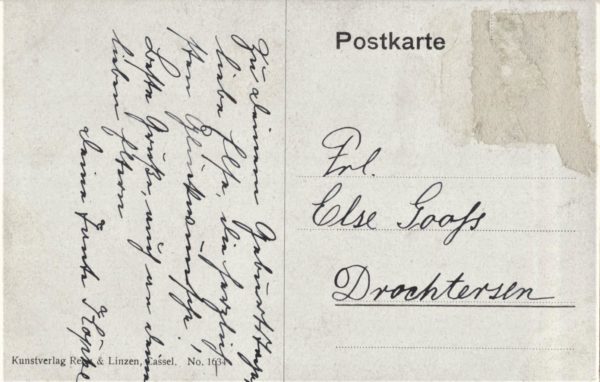 Postkarte
Frl.
Else Goofs
Drochtersen
Zu deinem Geburtstage
liebe Else, die herzlich-
sten Glückwünsche.
Beste Grüße, auch an deine
lieben Eltern
deine Tante Köpke
Kunstverlag & Linzen, Cassel. No. 1634